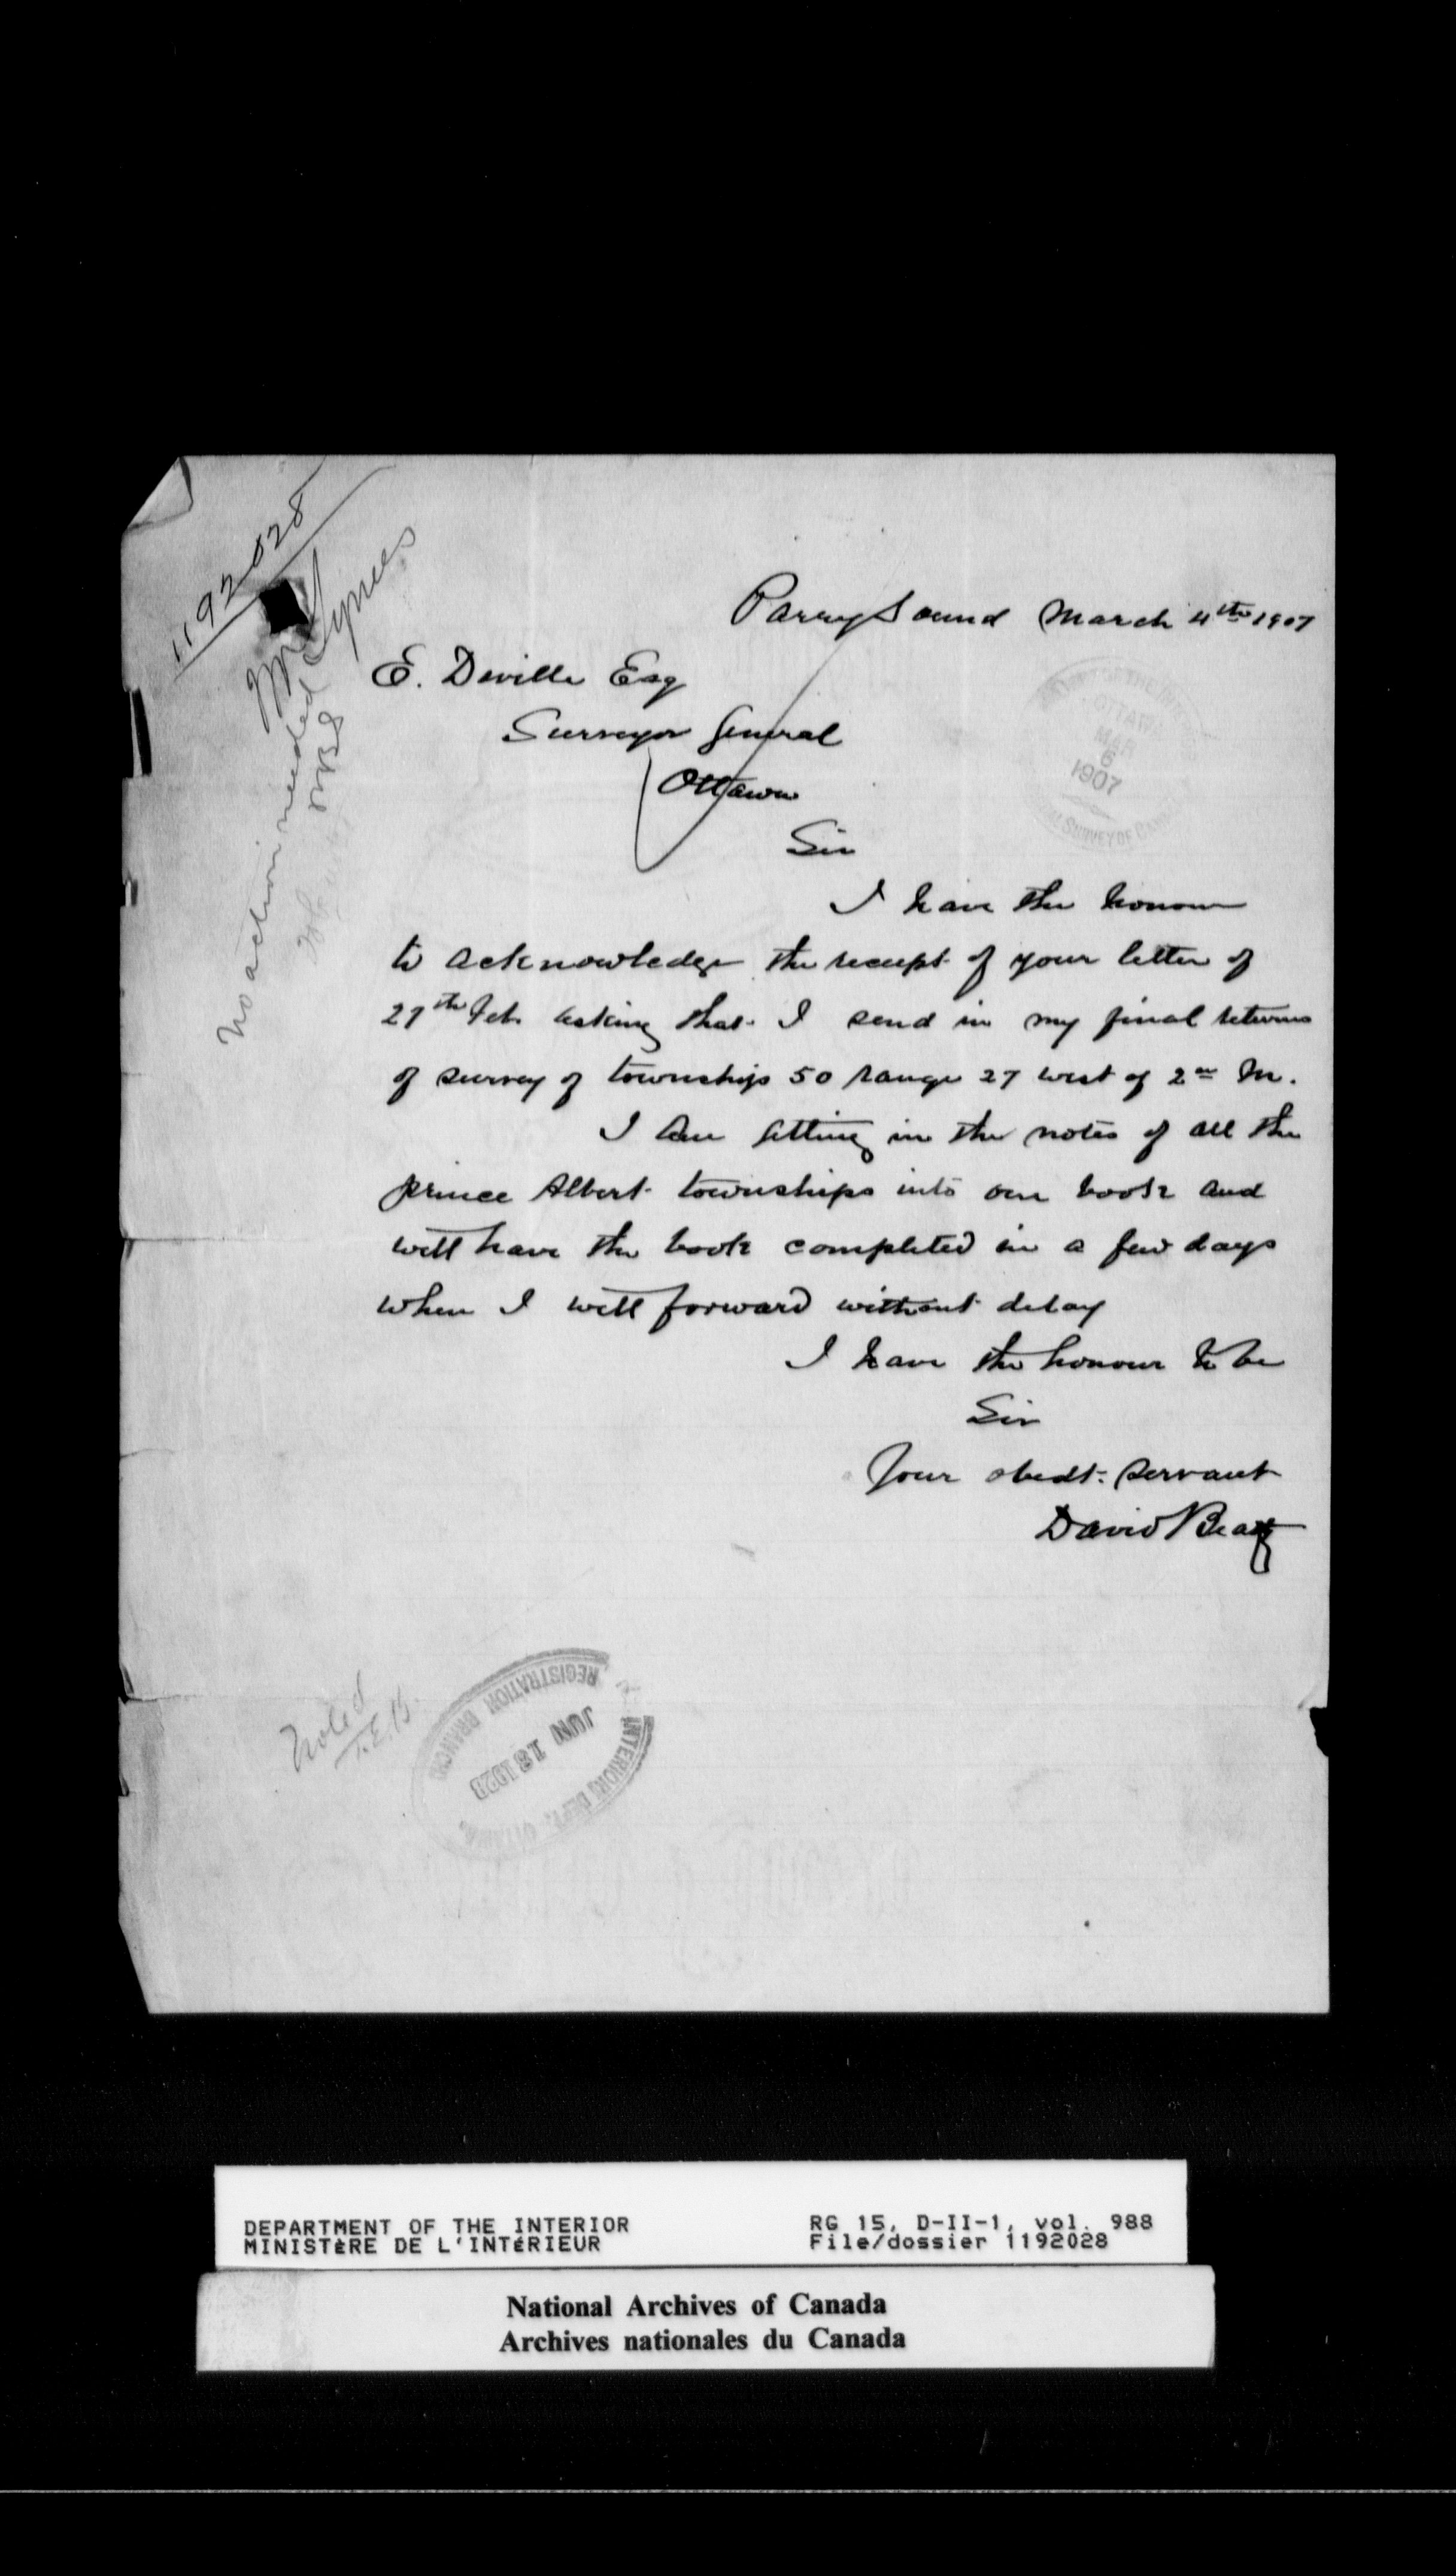 1192028
Mr Symes
No action needed
Parry Sound March 4th 1907
E. Deville Esq
Surveyor General
Ottawa
OTTAWA
MAR
6
1907
SURVEY OF CANADA
Sir
I have the honour
to acknowledge the receipt of your letter of
27th Feb. asking that I send in my final returns
of survey of township 50 range 27 west of 2nd M.
I am getting in the notes of all the
prince Albert townships into one book and
will have the book completed in a few days
when I will forward without delay
I have the honour to be
Sir
Your obedt. servant
David Beatty
Noted
REGISTRATION BRANCH
JUN 18 1923
INTERIOR DEPT. OTTAWA
DEPARTMENT OF THE INTERIOR
MINISTÈRE DE L'INTÉRIEUR
RG 15, D-II-1, vol. 988
File/dossier 1192028
National Archives of Canada
Archives nationales du Canada